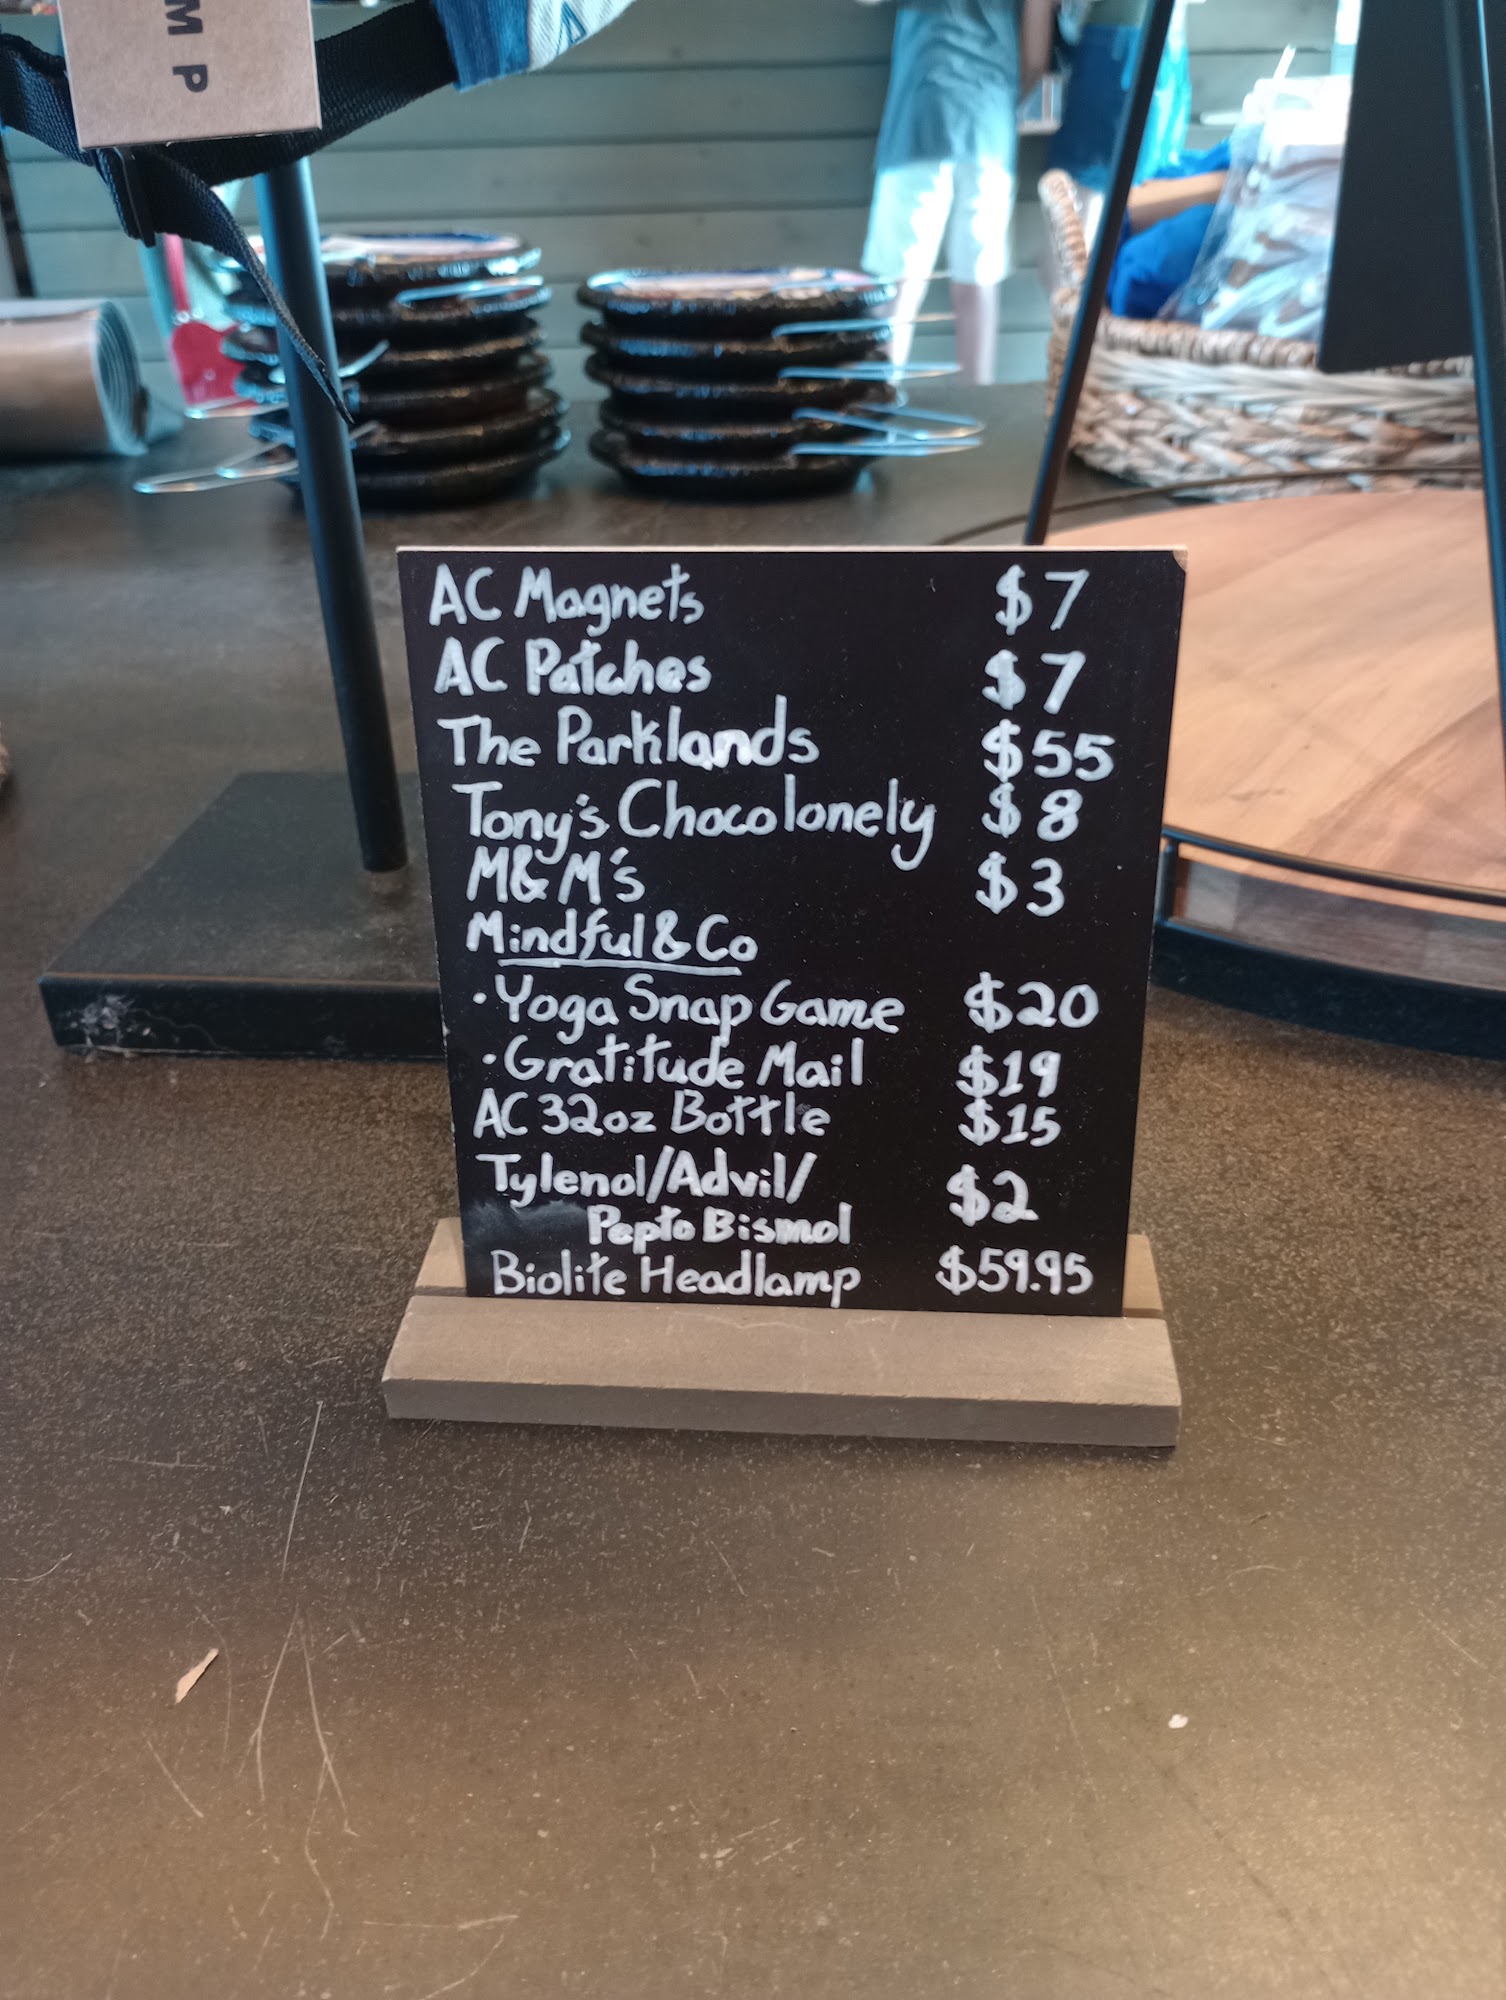 M P
AC Magnets $7
AC Patches $7
The Parklands $55
Tony's Chocolonely $8
M&M's $3
Mindful & Co
• Yoga Snap Game $20
• Gratitude Mail $19
AC 32oz Bottle $15
Tylenol/Advil/ $2
Pepto Bismol
Biolite Headlamp $59.95